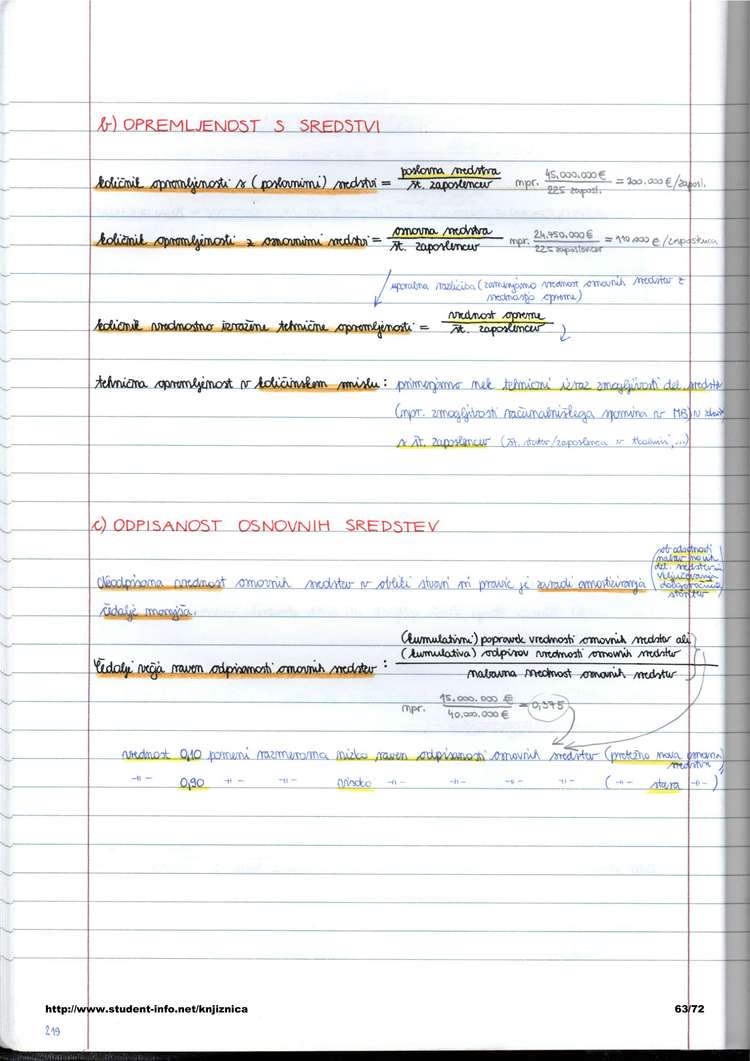 b) OPREMLJENOST S SREDSTVI
količnik opremljenosti s (poslovnimi) sredstvi = poslovna sredstva / št. zaposlencev npr. 45.000.000 € / 225 zaposl. = 200.000 €/zaposl.
količnik opremljenosti z osnovnimi sredstvi = osnovna sredstva / št. zaposlencev npr. 24.750.000 € / 225 zaposlencev = 110.000 €/zaposlenca
uporabna različica (zamenjamo vrednost osnovnih sredstev z
vrednostjo opreme)
količnik vrednostno izražene tehnične opremljenosti = vrednost opreme / št. zaposlencev
tehnična opremljenost v količinskem smislu: primerjamo nek tehnični izraz zmogljivosti del. sredstev
(npr. zmogljivosti računalniškega spomina v MB) v zbir
s št. zaposlencev (št. statev/zaposlenca v tkalnici,...)
c) ODPISANOST OSNOVNIH SREDSTEV
(ob odsotnosti
nabav novih
del. sredstev in
vključevanja
dolgoročnih
storitev)
Neodpisana vrednost osnovnih sredstev v obliki stvari in pravic je zaradi amortiziranja
čedalje manjša.
Čedalje večja raven odpisanosti osnovnih sredstev: (kumulativni) popravek vrednosti osnovnih sredstev ali
(kumulativa) odpisov vrednosti osnovnih sredstev
nabavna vrednost osnovnih sredstev
npr. 15.000.000 € / 40.000.000 € = 0,375
vrednost 0,10 pomeni razmeroma nizko raven odpisanosti osnovnih sredstev (pretežno nova osnovna
sredstva)
-||- 0,90 -||- -||- visoko -||- -||- -||- -||- (-||- stara -||-)
http://www.student-info.net/knjiznica 63/72
219